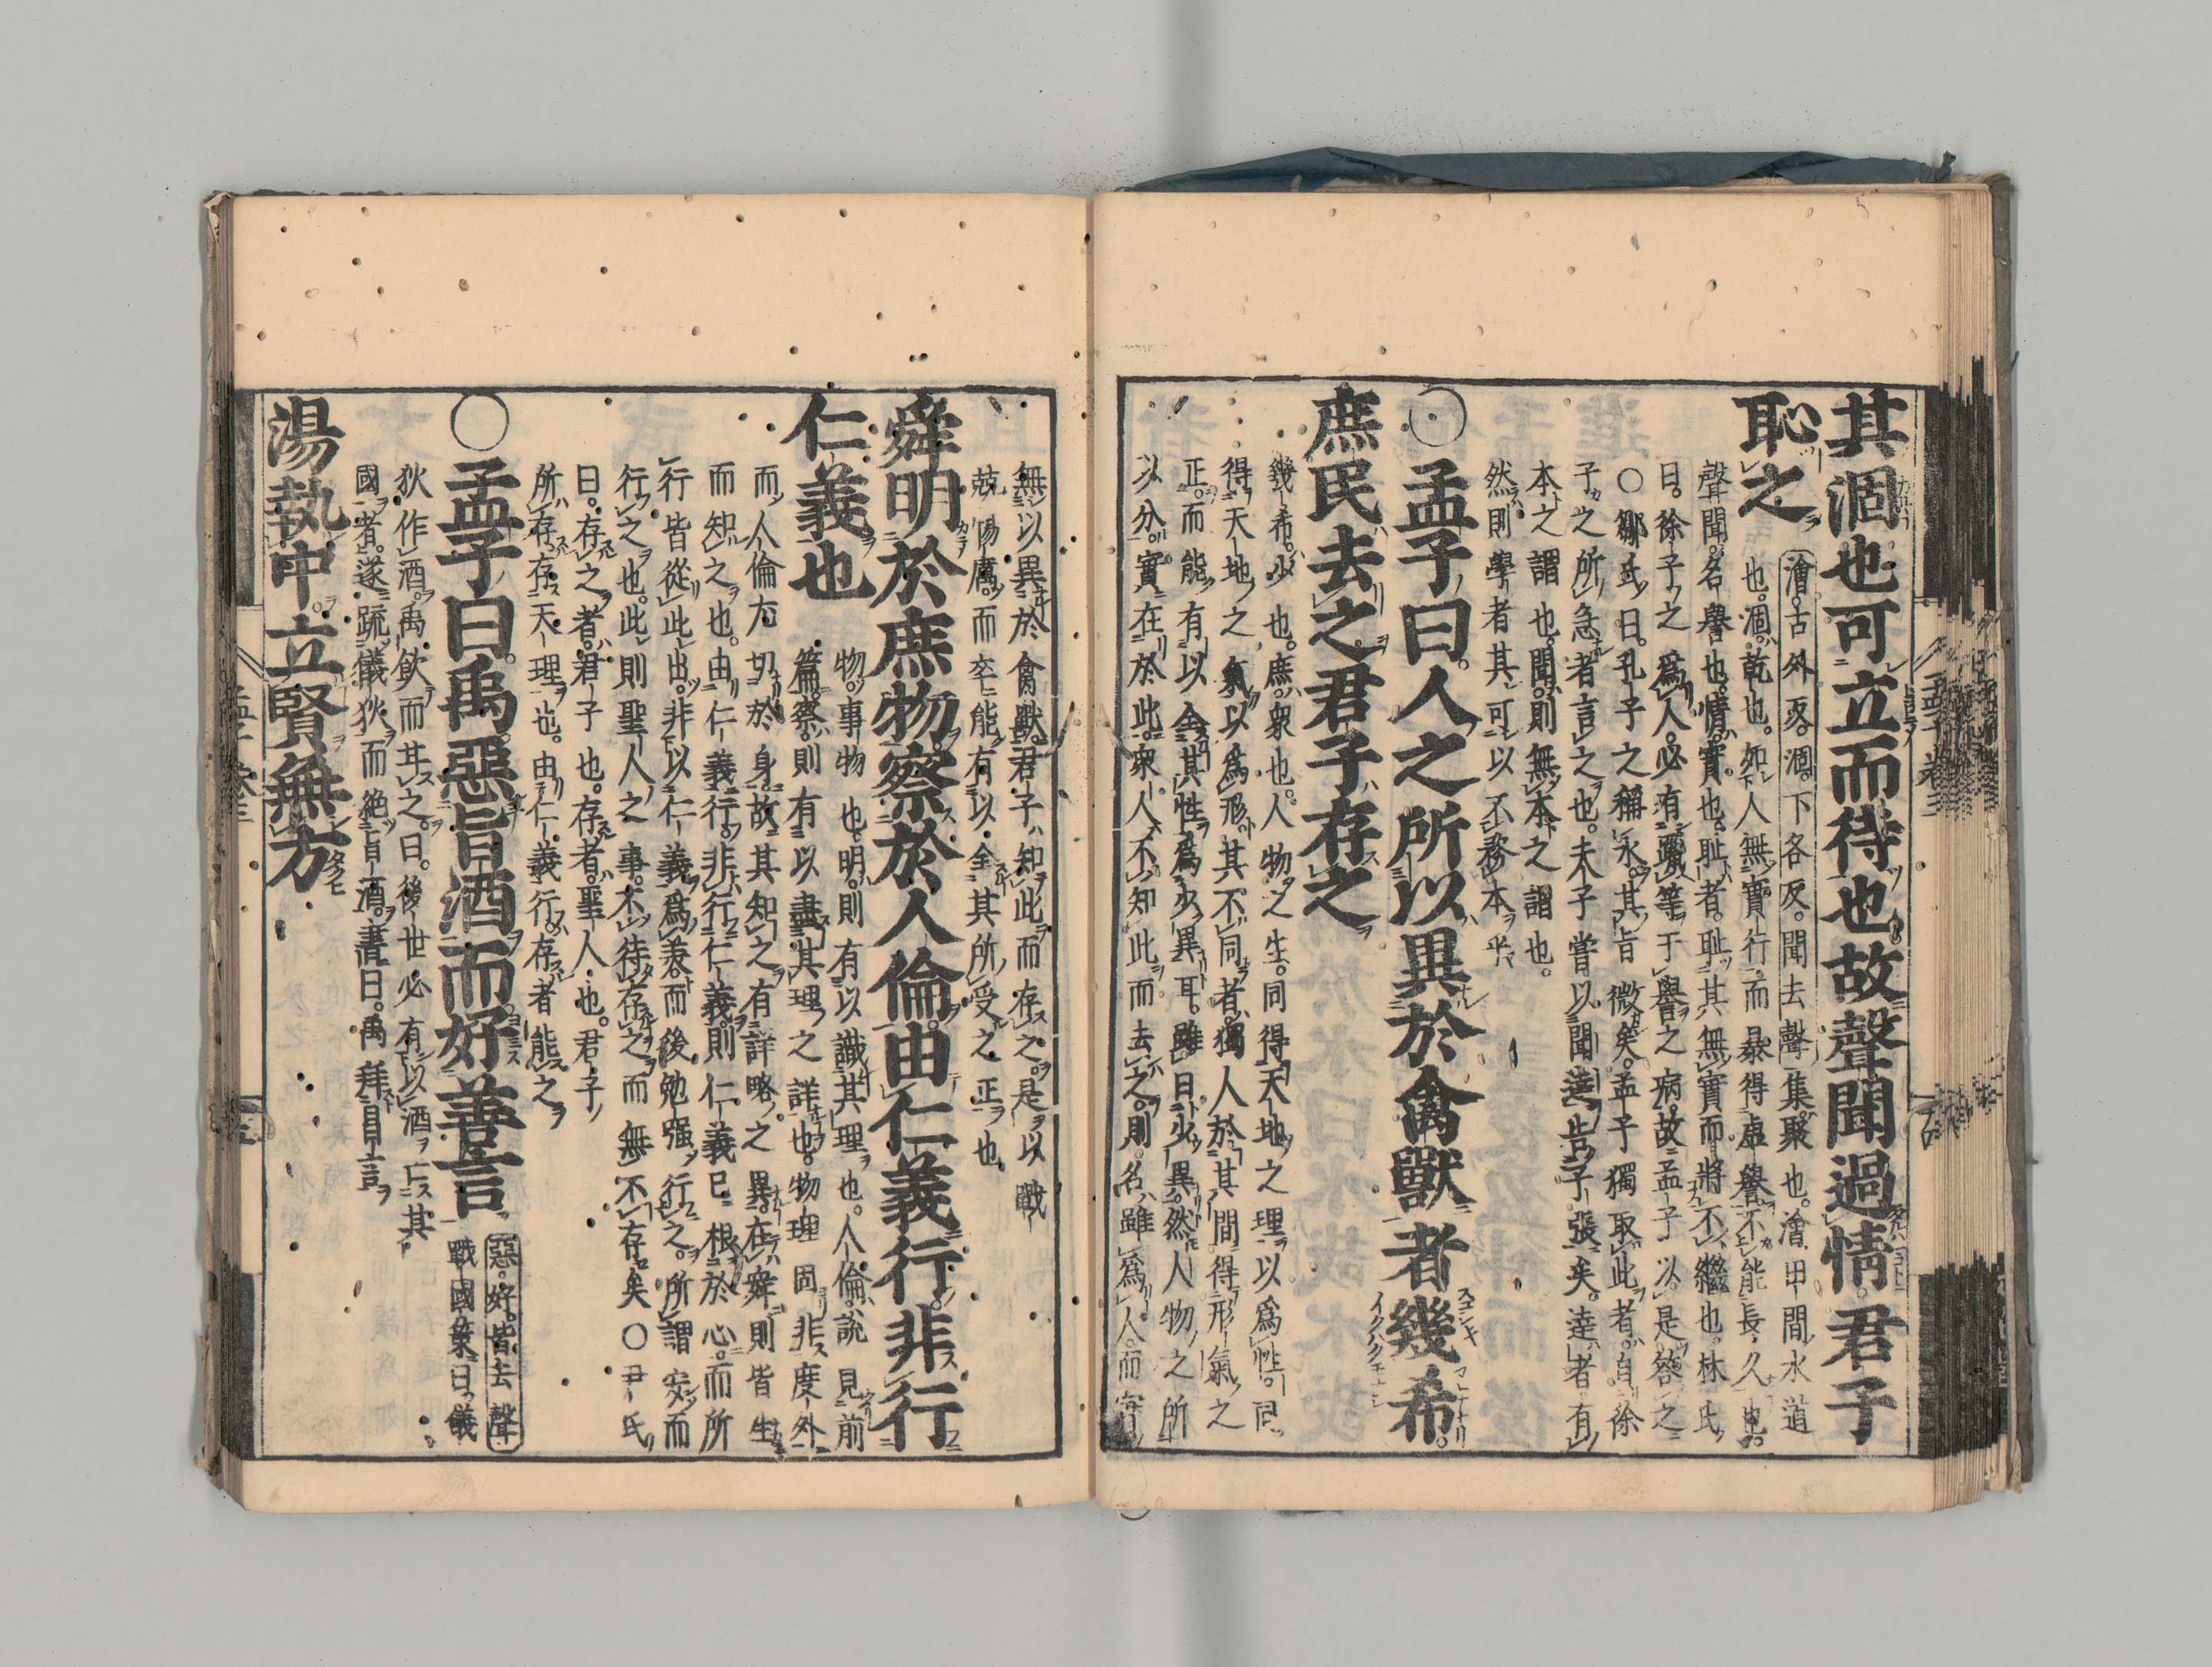 其涸也可立而待也故聲聞過情君子
恥之
澮古外反涸下各反聞去聲
集聚也澮田間水道
也涸乾也如人無實行而暴得虛譽不能長久也
聲聞名譽也情實也恥者恥其無實而將不繼也林氏
曰徐子之爲人必有躐等干譽之病故孟子以是答之
○鄒氏曰孔子之稱水其旨微矣孟子獨取此者自徐
子之所急者言之也夫子嘗以聞達告子張矣達者有
本之謂也聞則無本之謂也
然則學者其可以不務本乎
○孟子曰人之所以異於禽獸者幾希
庶民去之君子存之
幾希少也庶衆也人物之生同得天地之理以爲性同
得天地之氣以爲形其不同者獨人於其間得形氣之
正而能有以全其性爲少異耳雖曰少異然人物之所
以分實在於此衆人不知此而去之則名雖爲人而實
無以異於禽獸君子知此而存之是以戰
兢惕厲而卒能有以全其所受之正也
舜明於庶物察於人倫由仁義行非行
仁義也
物事物也明則有以識其理也人倫說見前
篇察則有以盡其理之詳也物理固非度外
而人倫尤切於身故其知之有詳略之異在舜則皆生
而知之也由仁義行非行仁義則仁義已根於心而所
行皆從此出非以仁義爲美而後勉强行之所謂安而
行之也此則聖人之事不待存之而無不存矣○尹氏
曰存之者君子也存者聖人也君子
所存存天理也由仁義行存者能之
○孟子曰禹惡旨酒而好善言
惡好皆去聲
戰國策曰儀
狄作酒禹飲而甘之曰後世必有以酒亡其
國者遂疏儀狄而絶旨酒書曰禹拜昌言
湯執中立賢無方